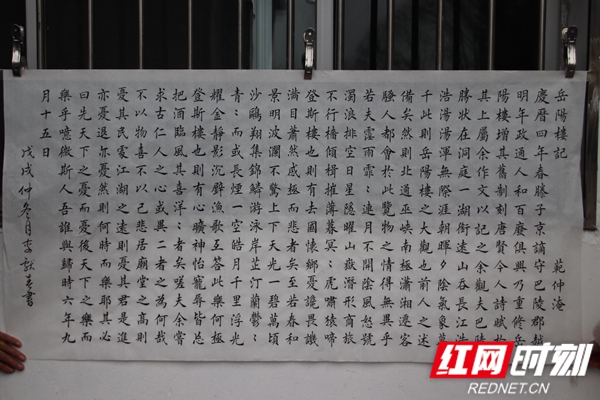 岳陽樓記 范仲淹
慶曆四年春滕子京謫守巴陵郡越
明年政通人和百廢俱興乃重修岳
陽樓增其舊制刻唐賢今人詩賦於
其上屬余作文以記之余觀夫巴陵
勝狀在洞庭一湖銜遠山吞長江浩
浩湯湯渾無際涯朝暉夕陰氣象萬
千此則岳陽樓之大觀也前人之述
備矣然則北通巫峽南極瀟湘遷客
騷人都會於此覽物之情得無異乎
若夫霪雨霏々連月不開陰風怒號
濁浪排空日星隱曜山嶽潛形商旅
不行檣傾楫摧薄暮冥々虎嘯猿啼
登斯樓也則有去國懷鄉憂讒畏譏
滿目蕭然感極而悲者矣至若春和
景明波瀾不驚上下天光一碧萬頃
沙鷗翔集錦鱗游泳岸芷汀蘭鬱々
青々而或長煙一空皓月千里浮光
耀金靜影沉璧漁歌互答此樂何極
登斯樓也則有心曠神怡寵辱皆忘
把酒臨風其喜洋々者矣嗟夫余嘗
求古仁人之心或異二者之為何哉
不以物喜不以己悲居廟堂之高則
憂其民處江湖之遠則憂其君是進
亦憂退亦憂然則何時而樂耶其必
曰先天下之憂而憂後天下之樂而
樂乎噫微斯人吾誰與歸時六年九
月十五日
戊戌仲冬月李獻書
红网时刻
REDNET.CN